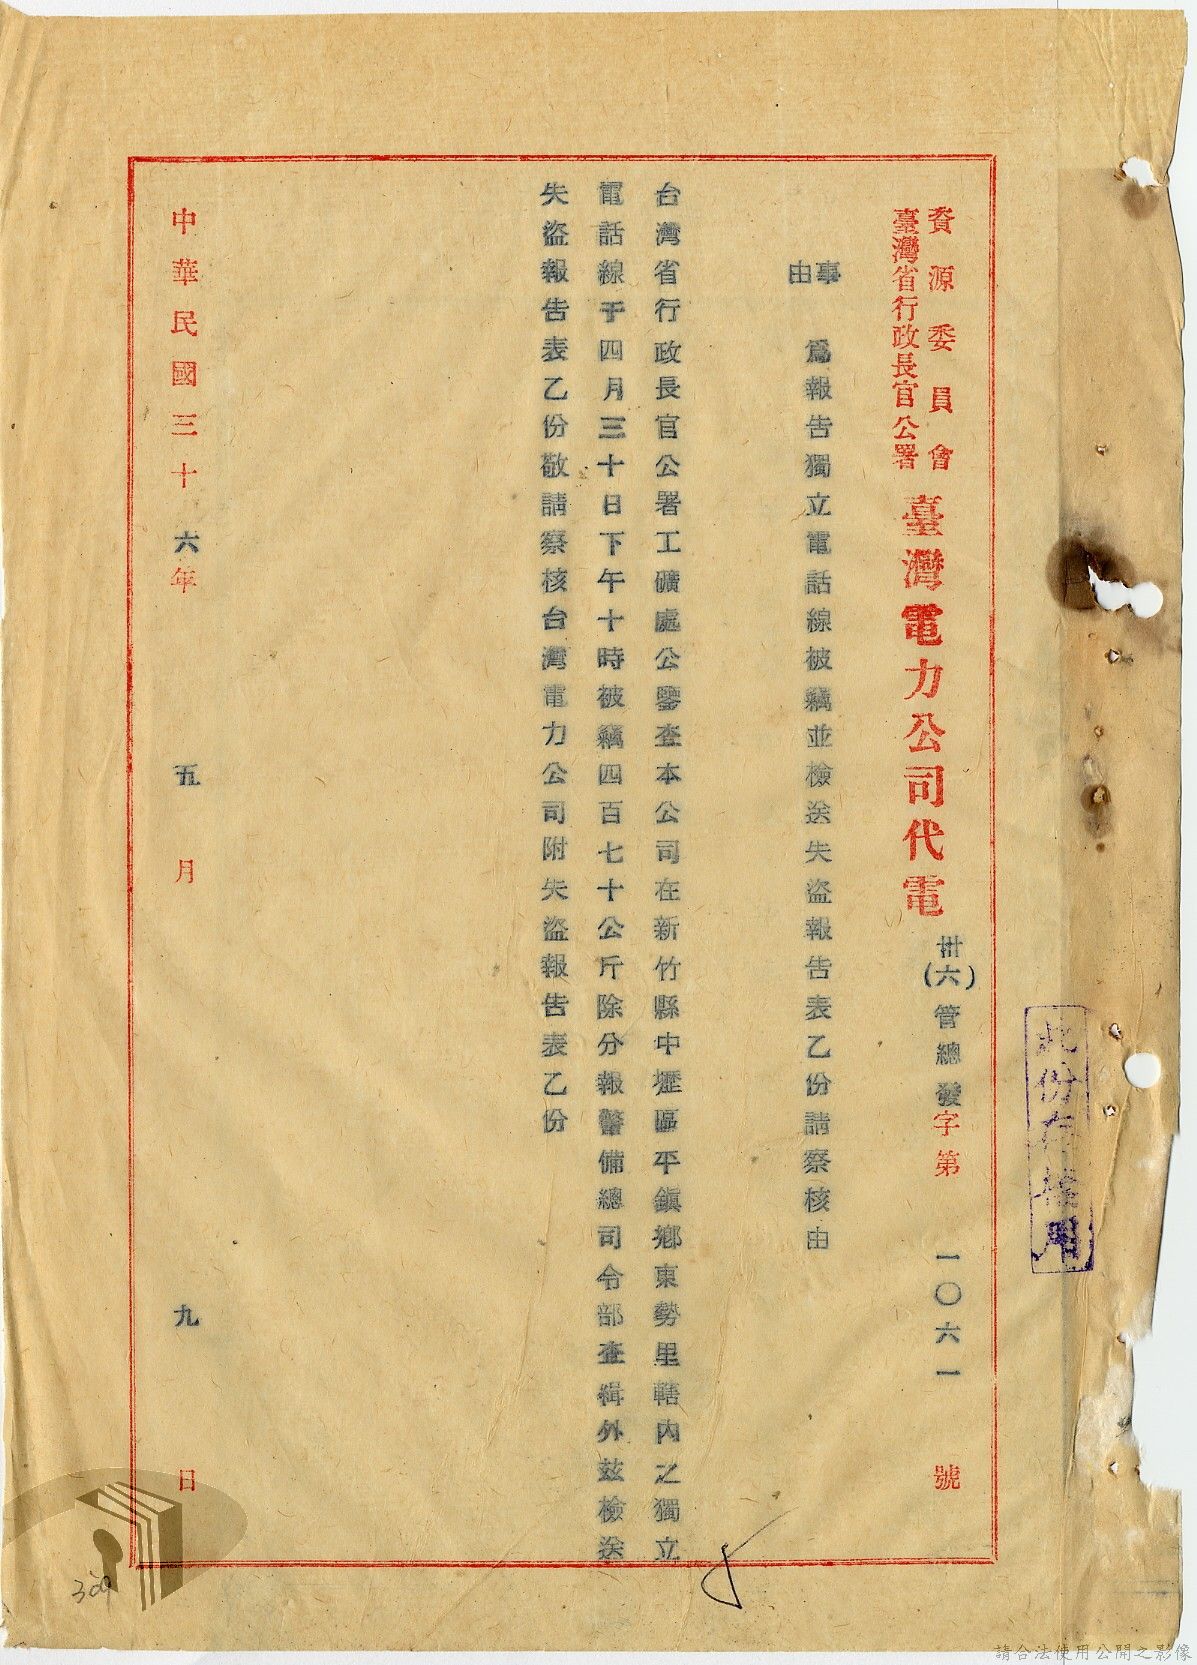 資源委員會
臺灣省行政長官公署
臺灣電力公司代電
卅(六)管總發字第一〇六一號
事由
為報告獨立電話線被竊並檢送失盜報告表乙份請察核由
台灣省行政長官公署工礦處公鑒查本公司在新竹縣中壢區平鎮鄉東勢里轄內之獨立
電話線于四月三十日下午十時被竊四百七十公斤除分報警備總司令部查緝外茲檢送
失盜報告表乙份敬請察核台灣電力公司附失盜報告表乙份
中華民國三十六年五月九日
此份存檔用
請合法使用公開之影像